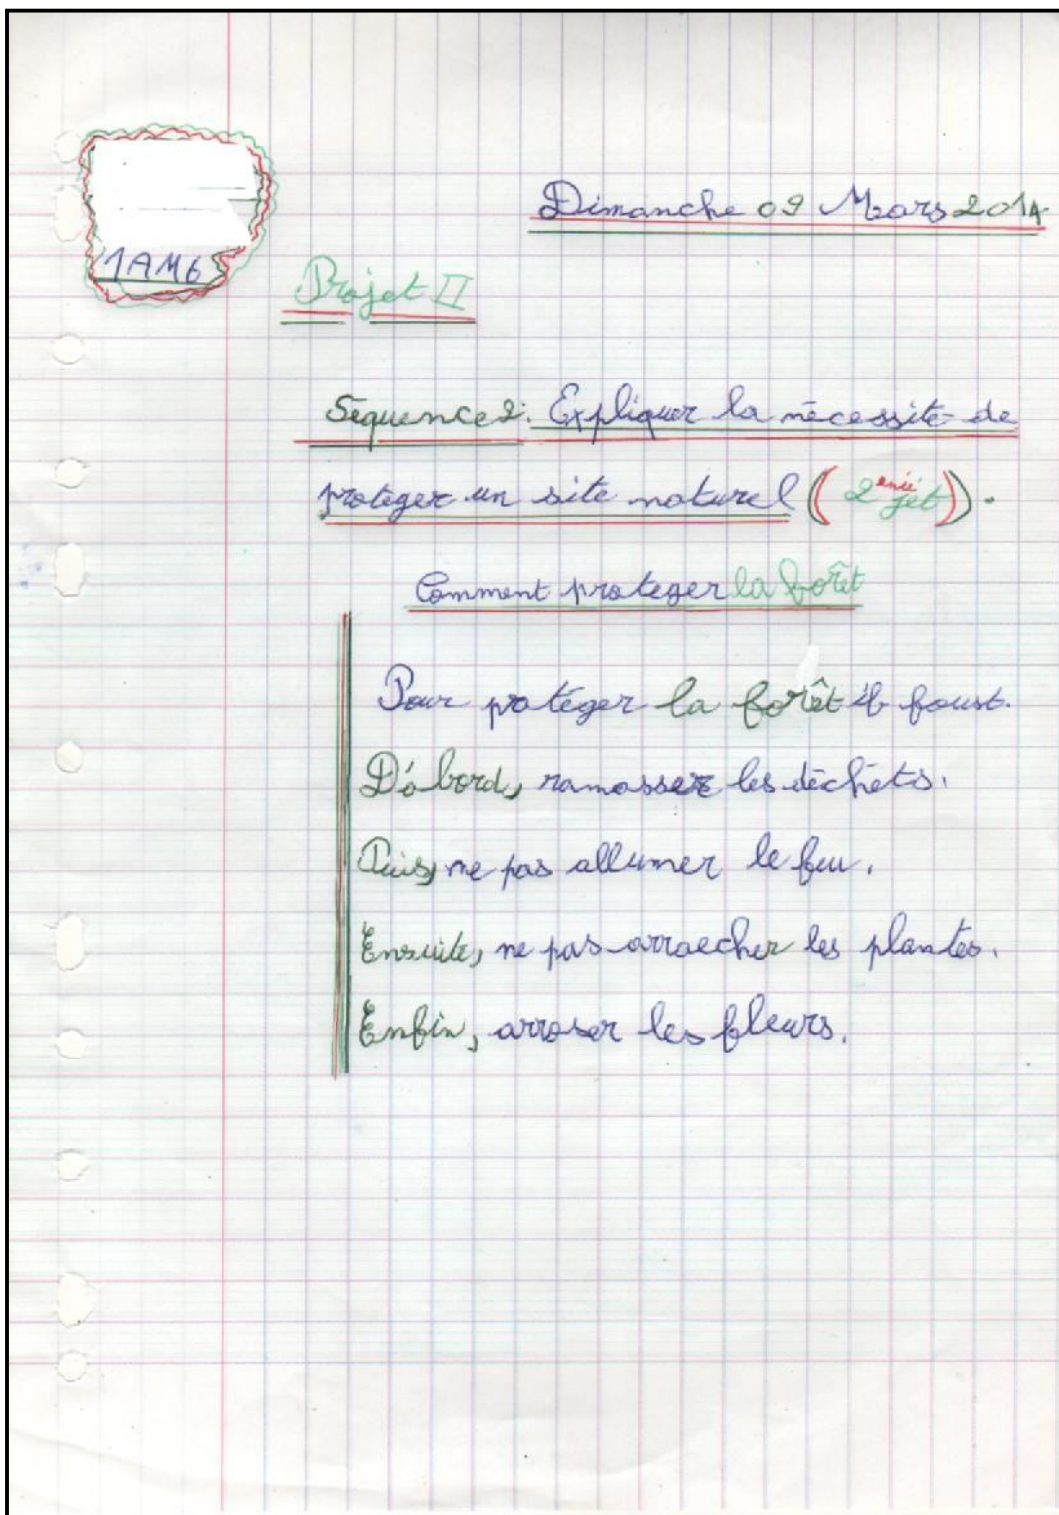 Dimanche 09 Mars 2014
1AM6
Projet II
Séquence 2: Expliquer la nécessité de
protéger un site naturel (2enié jet).
Comment proteger la forêt
Pour protéger la forêt il foust.
D'abord, ramasser les déchéts.
Puis, ne pas allumer le feu.
Ensuite, ne pas arraecher les plantes.
Enfin, arroser les fleurs.